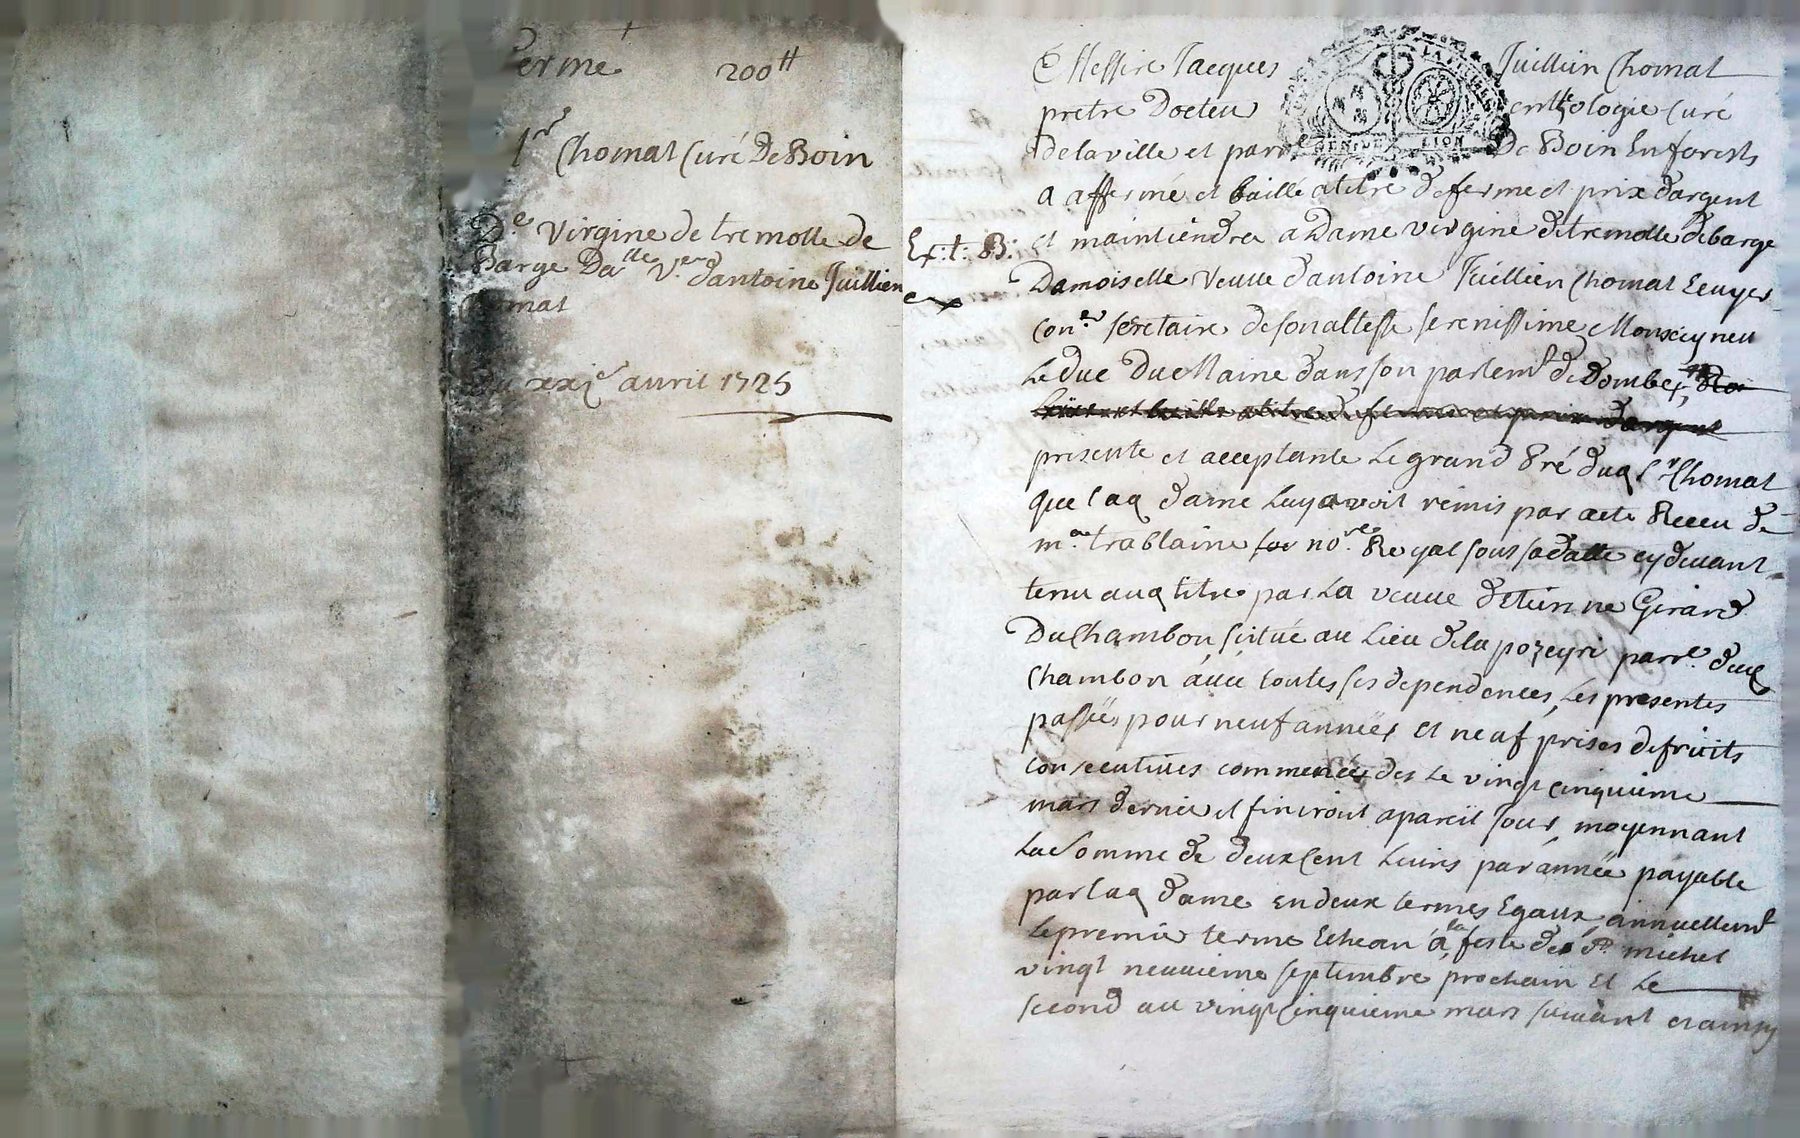 ferme 200tt
Sr Chomat Curé De Boin
De Virgine de tremolle de
Barge Dalle Ve d'antoine Juillien
Chomat
Du xxje avril 1725
Ex.t. B.
Messire Jacques Juillien Chomat
pretre Docteu enthologie Curé
delaville et parrse De Boin En forests
a affermé et baillé atitre deferme et prix dargent
Et maintiendra a Dame virgine detremolle debarge
Damoiselle veuve d'antoine Juillien Chomat Ecuyer
Coner secretaire desonaltesse serenissime Monseigneu
Le Duc Du Maine dans son parlemt de Dombes,
presente et acceptante Le grand Pré duq Sr Chomat
que laq dame Luy avoit remis par acte Receu de
me trablaine nore Royal sous sa datte cy devant
tenu auq titre par La veuve d'Etienne Girard
Du Chambon, scitué au Lieu de la pozeyri parrse dud
Chambon avec toutes ses dependences, Les presentes
passées pour neuf années Et neuf prises defruits
consecutives commencées des Le vingt cinquieme
mars dernier et finiront apareil jour, moyennant
La somme de deux Cent Livres par année payable
par laq dame en deux termes Egaux annuellemt
Le premier terme Echeant a la feste de St michel
vingt neuvieme septembre prochain Et Le
second au vingt Cinquieme mars suivant et ainsy